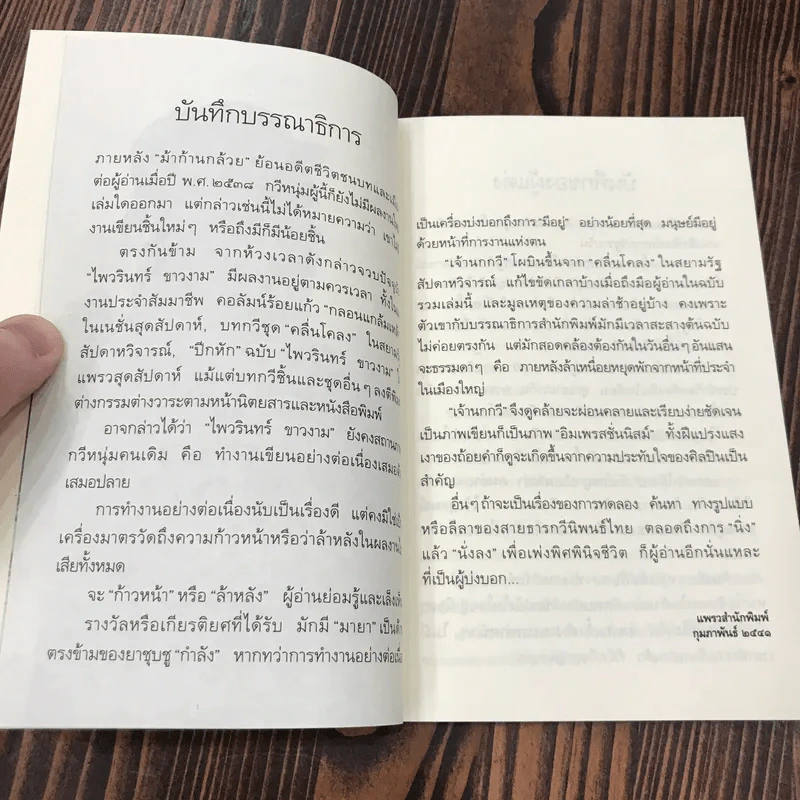 บันทึกบรรณาธิการ
ภายหลัง “ม้าก้านกล้วย” ย้อนอดีตชีวิตชนบทและเมือง
ต่อผู้อ่านเมื่อปี พ.ศ.๒๕๓๘ กวีหนุ่มผู้นี้ก็ยังไม่มีผลงาน
เล่มใดออกมา แต่กล่าวเช่นนี้ไม่ได้หมายความว่า เขา
งานเขียนชิ้นใหม่ๆ หรือถึงมีก็มีน้อยชิ้น
ตรงกันข้าม จากห้วงเวลาดังกล่าวจวบปัจจุบัน
“ไพวรินทร์ ขาวงาม” มีผลงานอยู่ตามควรเวลา ทั้งใน
งานประจำสัมมาชีพ คอลัมน์ร้อยแก้ว “กลอนแกล้ม
ในเนชั่นสุดสัปดาห์, บทกวีชุด “คลื่นโคลง” ในสยามรัฐ
สัปดาหวิจารณ์, “ปีกหัก” ฉบับ “ไพวรินทร์ ขาวงาม”
แพรวสุดสัปดาห์ แม้แต่บทกวีชิ้นและชุดอื่นๆ ลงตีพิมพ์
ต่างกรรมต่างวาระตามหน้านิตยสารและหนังสือพิมพ์
อาจกล่าวได้ว่า “ไพวรินทร์ ขาวงาม” ยังคงสถานภาพ
กวีหนุ่มคนเดิม คือ ทำงานเขียนอย่างต่อเนื่องเสมอต้น
เสมอปลาย
การทำงานอย่างต่อเนื่องนับเป็นเรื่องดี แต่คงมิใช่
เครื่องมาตรวัดถึงความก้าวหน้าหรือว่าล้าหลังในผลงาน
เสียทั้งหมด
จะ “ก้าวหน้า” หรือ “ล้าหลัง” ผู้อ่านย่อมรู้และเล็งเห็น
รางวัลหรือเกียรติยศที่ได้รับ มักมี “มายา” เป็น
ตรงข้ามของยาชุบชู “กำลัง” หากทว่าการทำงานอย่างต่อเนื่อง
เป็นเครื่องบ่งบอกถึงการ “มีอยู่” อย่างน้อยที่สุด มนุษย์มีอยู่
ด้วยหน้าที่การงานแห่งตน
“เจ้านกกวี” โผบินขึ้นจาก “คลื่นโคลง” ในสยามรัฐ
สัปดาหวิจารณ์ แก้ไขขัดเกลาบ้างเมื่อถึงมือผู้อ่านในฉบับ
รวมเล่มนี้ และมูลเหตุของความล่าช้าอยู่บ้าง คงเพราะ
ตัวเขากับบรรณาธิการสำนักพิมพ์มักมีเวลาสะสางต้นฉบับ
ไม่ค่อยตรงกัน แต่มักสอดคล้องต้องกันในวันอื่นๆ อันแสน
จะธรรมดาๆ คือ ภายหลังล้าเหนื่อยหยุดพักจากหน้าที่ประจำ
ในเมืองใหญ่
“เจ้านกกวี” จึงดูคล้ายจะผ่อนคลายและเรียบง่ายชัดเจน
เป็นภาพเขียนก็เป็นภาพ “อิมเพรสชั่นนิสม์” ทั้งฝีแปรงแสง
เงาของถ้อยคำก็ดูจะเกิดขึ้นจากความประทับใจของศิลปินเป็น
สำคัญ
อื่นๆ ถ้าจะเป็นเรื่องของการทดลอง ค้นหา ทางรูปแบบ
หรือลีลาของสายธารกวีนิพนธ์ไทย ตลอดถึงการ “นิ่ง”
แล้ว “นั่งลง” เพื่อเพ่งพิศพินิจชีวิต ก็ผู้อ่านอีกนั่นแหละ
ที่เป็นผู้บ่งบอก...
แพรวสำนักพิมพ์
กุมภาพันธ์ ๒๕๔๑